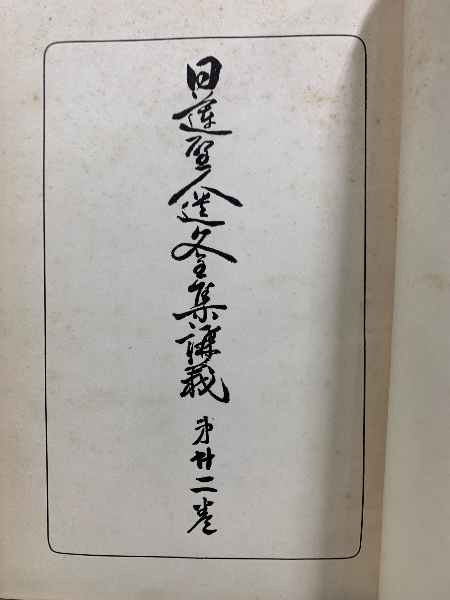 日蓮聖人遺文全集講義 第廿二巻